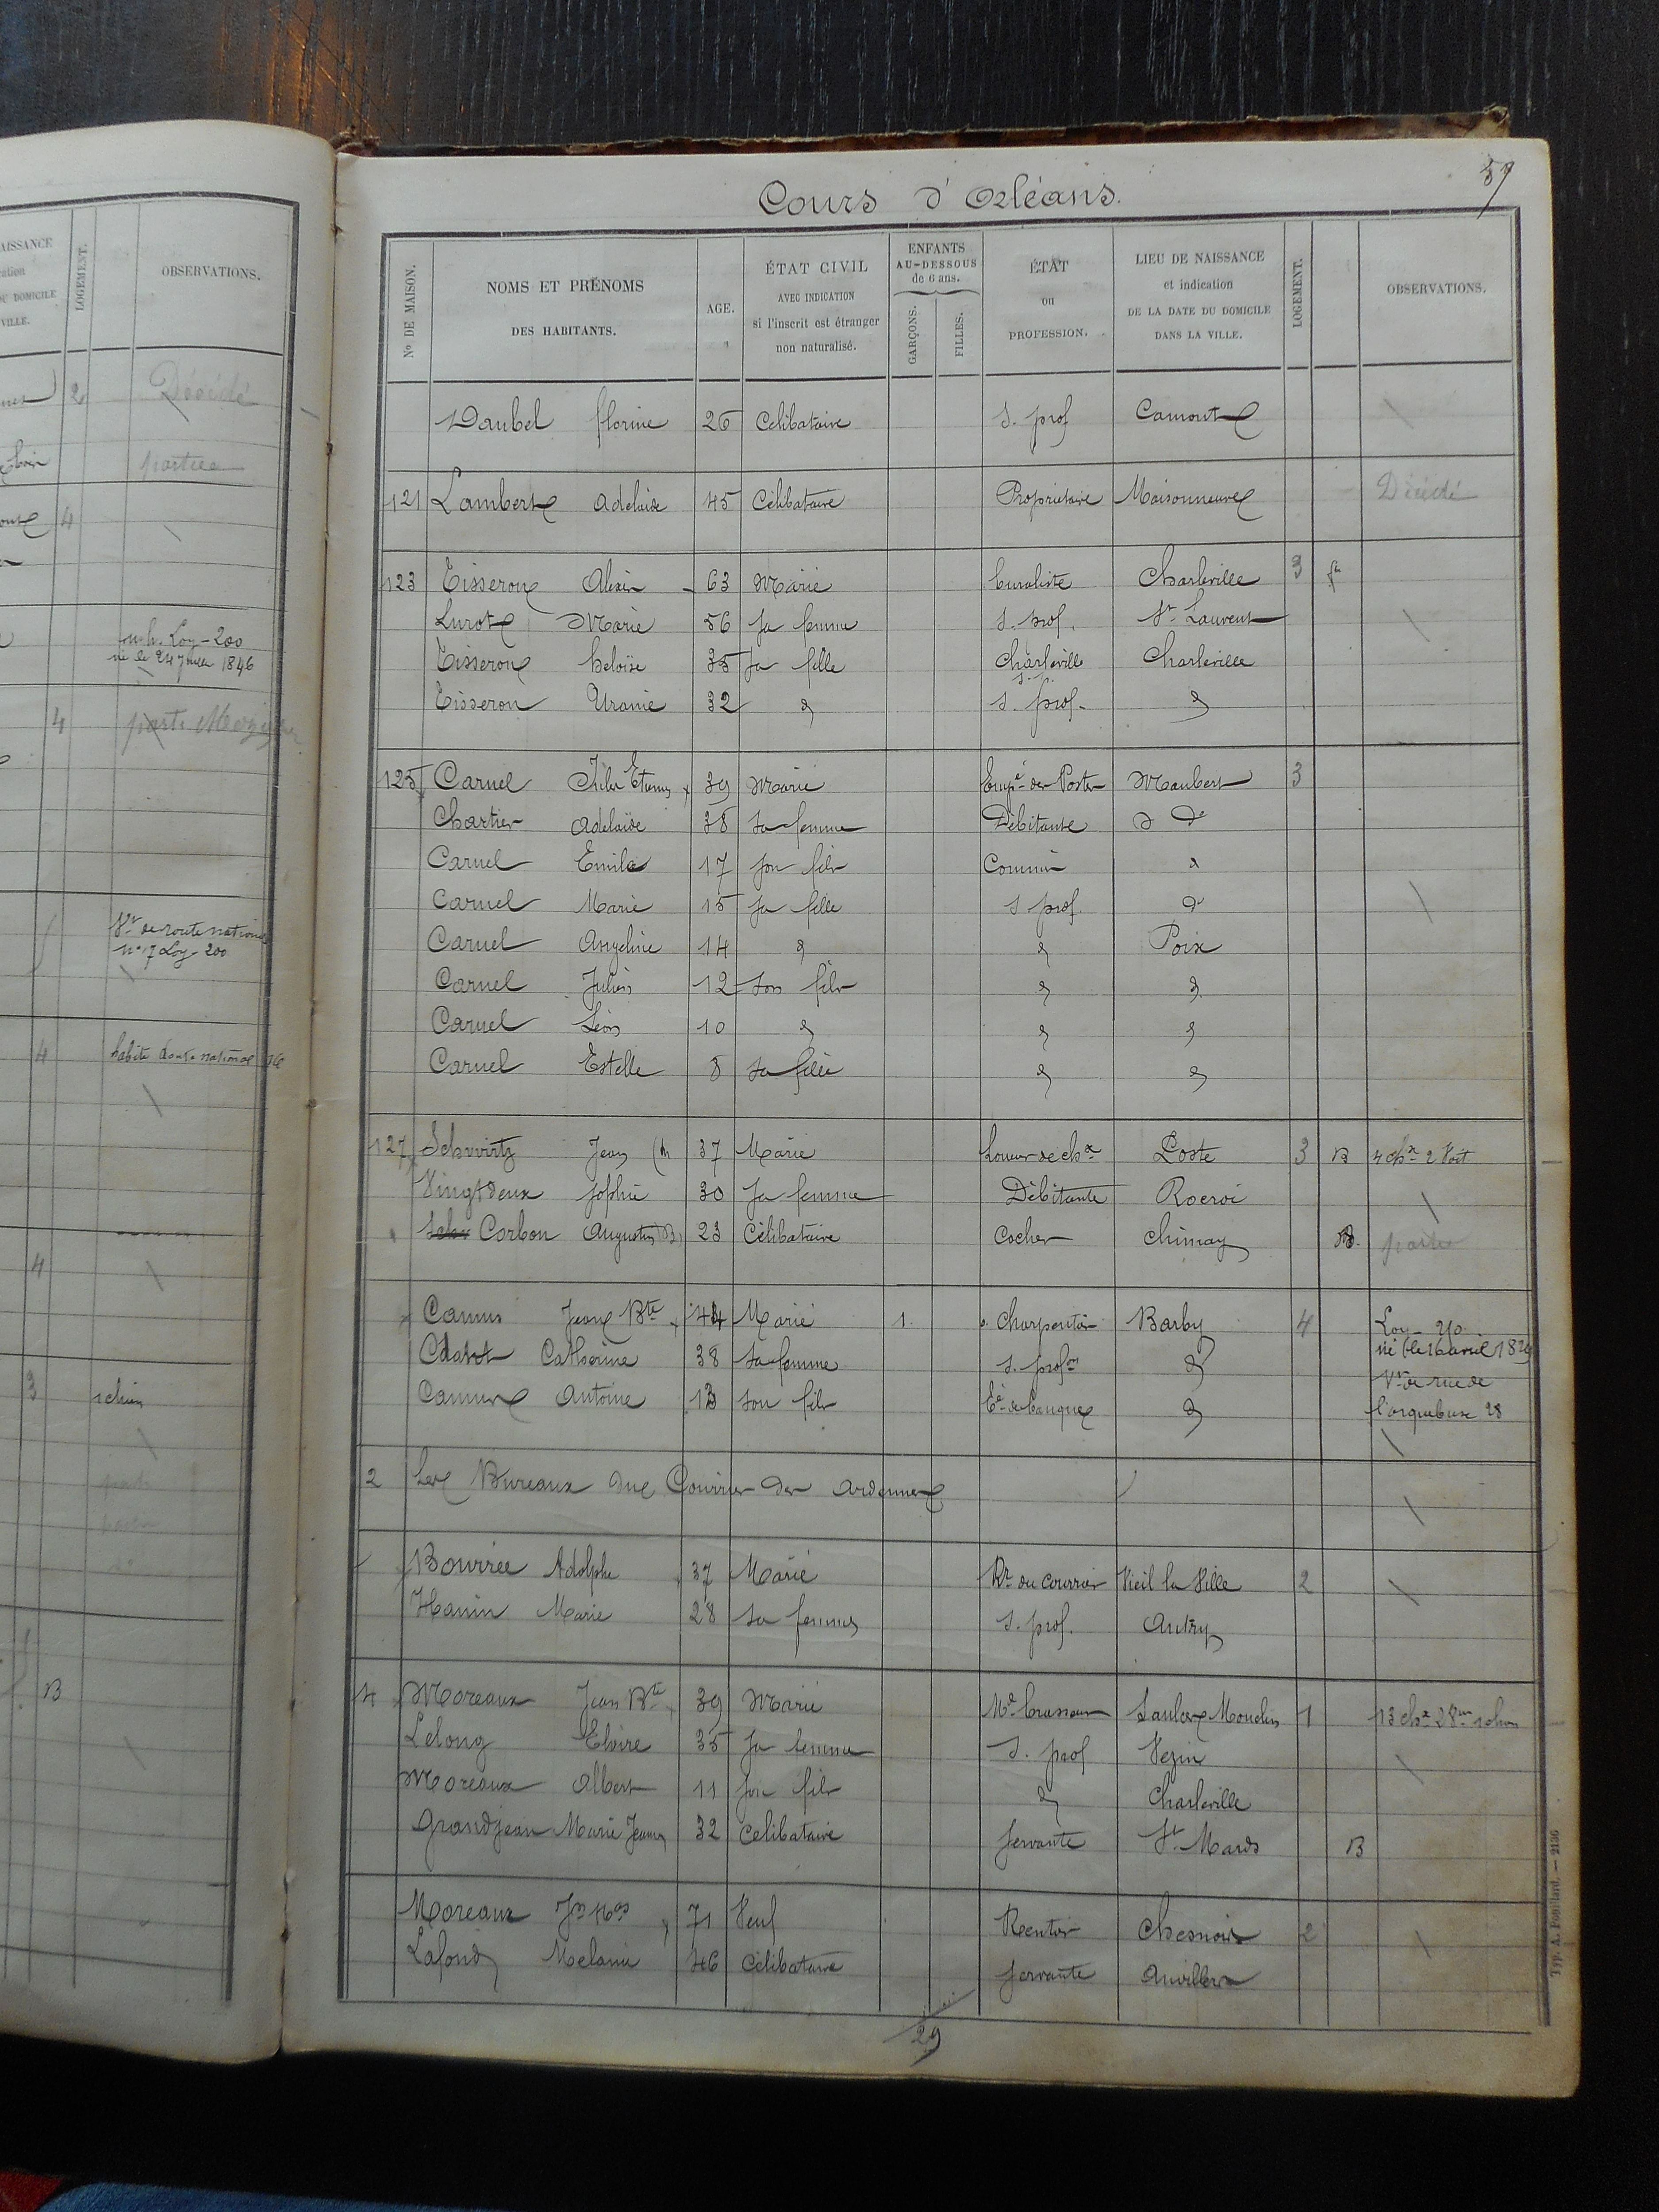 AISSANCE
DU DOMICILE
VILLE.
LOGEMENT.
OBSERVATIONS.
2 Décédé
partie
4
Loy - 200
né le 24 Juillet 1846
4 parti Mezi
de route nation
n° 7 Loy 200
4 habite route national
4
3 1 chien
B
57
Cours d'Orléans.
N° DE MAISON.
NOMS ET PRÉNOMS
DES HABITANTS.
AGE.
ÉTAT CIVIL
AVEC INDICATION
si l'inscrit est étranger
non naturalisé.
ENFANTS
AU-DESSOUS
de 6 ans.
GARÇONS.
FILLES.
ÉTAT
ou
PROFESSION.
LIEU DE NAISSANCE
et indication
DE LA DATE DU DOMICILE
DANS LA VILLE.
LOGEMENT.
OBSERVATIONS.
Daubel florine 26 Célibataire s. prof Camont
121 Lambert Adelaide 45 Célibataire Propriétaire Maisonneuve Décédé
123 Tisseron Alexis 63 Marié Buraliste Charleville 3
Lurot Marie 56 sa femme s. prof. St Laurent
Tisseron heloïse 35 sa fille Charleville Charleville
Tisseron Uranie 32 d s. prof. d
125 Caruel Etienne 39 Marié Empé des Postes Maubert 3
Chartier Adelaïde 38 sa femme Débitante d d°
Caruel Emile 17 son fils Commis d
Caruel Marie 15 sa fille s prof d°
Caruel Angeline 14 d d Poix
Caruel Julien 12 son fils d d
Caruel Léon 10 d d d
Caruel Estelle 8 sa fille d d
127 Schvirtz Jean 37 Marié Loueur de chx Poste 3 B 4 chx 2 Voit
Vingtdeux Sophie 30 sa femme Débitante Rocroi
Corbon Augustin 23 Célibataire Cocher Chimay B. parti
Camus Jean Bte 44 Marié 1 Charpentier Barby 4 Loy - 210
Catherine 38 sa femme s. profon d né le 16 avril 1829
Camus Antoine 13 son fils Eé de banque d Vt de rue de
l'arquebuse 28
2 Les Bureaux du Courrier des Ardennes
Bouvrée Adolphe 37 Marié Rr du Courrier Vieil la Ville 2
Hanin Marie 28 sa femme s. prof. Autry
4 Moreaux Jean Bte 39 Marié Md brasseur Saulces Monclin 1 13 chx 28 1 chien
Lelong Elvire 35 sa femme s. prof Vezin
Moreaux Albert 11 son fils d Charleville
Grandjean Marie Jeanne 32 Célibataire servante St Mards B
Moreaux Jn 71 Veuf Rentier Chesnois 2
Lafond Melanie 46 Célibataire servante Auvillers
29
Typ. A. Pouillard. — 2136